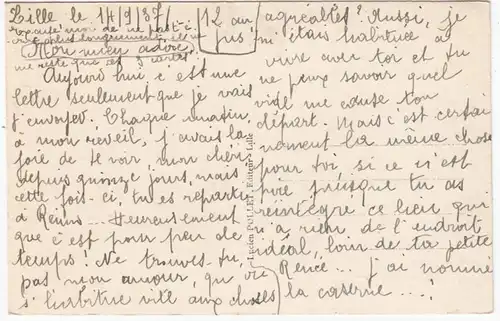 Lille le 14/9/37
12 août
Mon mien adoré,
me reste que ces 3 cartes
Aujourd'hui c'est une
lettre seulement que je vais
t'envoyer. Chaque matin
à mon réveil, j'avais la
joie de te voir, mon chéri
depuis quinze jours, mais
cette fois-ci, tu es reparti
à Reims... Heureusement
que c'est pour peu de
temps! Ne trouves-tu,
pas mon amour, qu'
s'habitue vite aux choses
agréables? Aussi, je
m'étais habituée à
vivre avec toi et tu
ne peux savoir quel
vide me cause ton
départ. Mais c'est certai
nement la même chose
pour toi, si ce n'est
pire puisque tu as
réintégré ce lieu qui
n'a rien, de l'endroit
idéal, loin de ta petite
Renée... j'ai nommé
la caserne...!
Lucien POLLET, Editeur - Lille